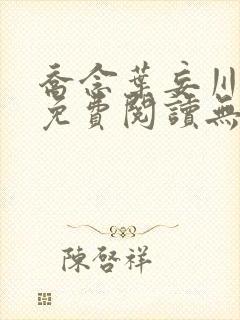 喬念葉妄川
免費閱讀無
陳啓祥